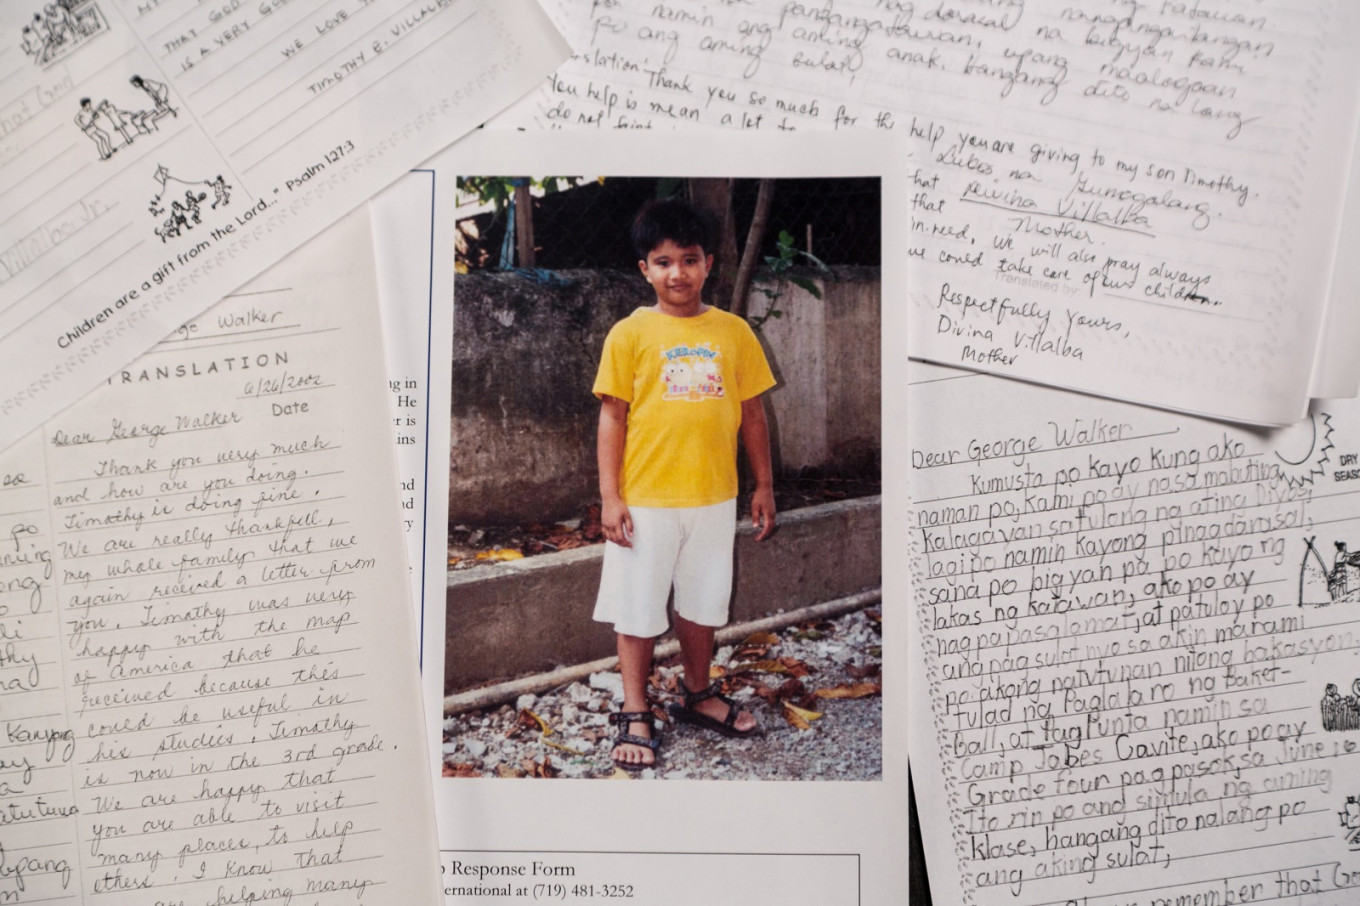 THAT GOD
IS A VERY GO
WE LOVE Y
TIMOTHY E. VILLAL
Children are a gift from the Lord..." Psalm 127:3
Villalba Jr.
ge Walker
TRANSLATION
6/26/2002
Date
Dear George Walker
Thank you very much
and how are you doing.
Timothy is doing fine.
We are really thankfull,
my whole family that we
again received a letter from
you. Timothy was very
happy with the map
of America that he
received because this
could be useful in
his studies. Timothy
is now in the 3rd grade.
We are happy that
you are able to visit
many places, to help
others. I know that
are helping many
na bigyan
po namin ang aming pangangatawan, upang maalagaan
po ang aming anak, hangang dito na lang
sulat,
slation: Thank you so much for the help you are giving to my son Timothy.
You help is mean a lot to
do not
Lubos na Gumagalang.
that Divina Villalba
that Mother.
in need, we will also pray always
we could take care of our children.
Translated by:
Respectfully Yours,
Divina Villalba
Mother
ng in
He
r is
ins
nd
nd
ry
Response Form
ernational at (719) 481-3252
Dear George Walker
Kumusta po kayo kung ako
naman po, kami po ay nasa mabuting
kalagayan sa tulong ng ating Diyos,
lagi po namin kayong pinagdarasal,
sana po bigyan pa po kayo ng
lakas ng katawan, ako po ay
nagpapasalamat, at patuloy po
ang pag sulat nyo sa akin marami
po akong natutunan nitong bakasyon,
tulad ng Paglalaro ng Baket-
Ball, at tag Punta namin sa
Camp Jabes Cavite, ako po ay
Grade four pag pasok sa June 10
Ito rin po ang simula ng aming
klase, hangang dito nalang po
ang aking sulat,
remember that Go
DRY
SEASO